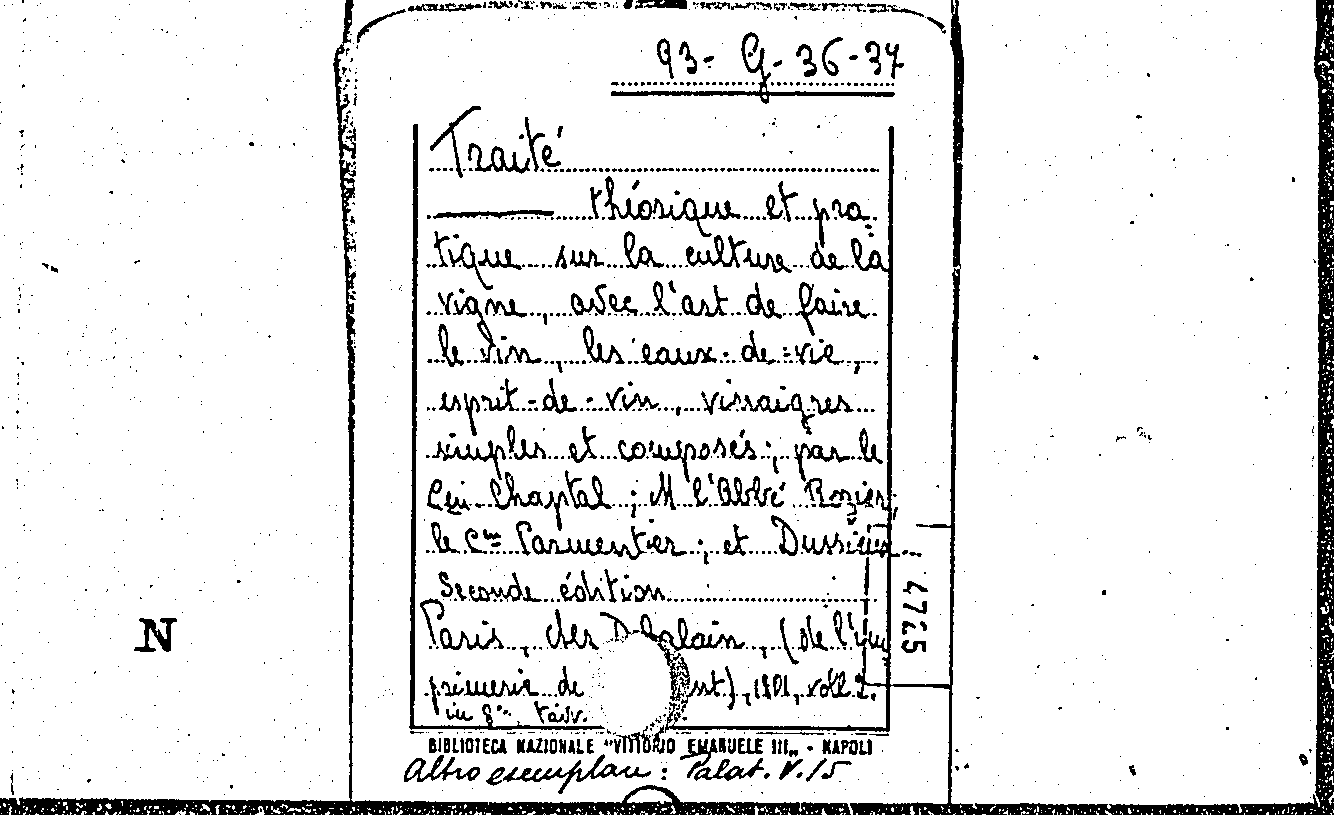 93- G- 36-37
Traité
théorique et pra
tique sur la culture de la
vigne, avec l'art de faire
le vin, les eaux-de-vie,
esprit-de-vin, vinaigres
simples et composés; par le
Cen Chaptal; M l'Abbé Rozier;
le Cen Parmentier; et Dussieux...
Seconde édition
Paris, chez Delalain, (de l'im
primerie de nt), 1801, voll 2.
in 8° tav.
4725
N
BIBLIOTECA NAZIONALE "VITTORIO EMANUELE III„ - NAPOLI
Altro esemplare: Palat. V. 15